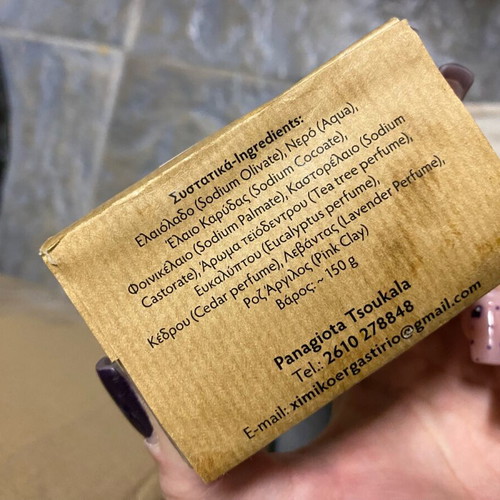 Συστατικά-Ingredients:
Ελαιόλαδο (Sodium Olivate), Νερό (Aqua),
Έλαιο Καρύδας (Sodium Cocoate),
Φοινικέλαιο (Sodium Palmate), Καστορέλαιο (Sodium
Castorate), Άρωμα τεϊόδεντρου (Tea tree perfume),
Ευκαλύπτου (Eucalyptus perfume),
Κέδρου (Cedar perfume), Λεβάντας (Lavender Perfume),
Ροζ Άργιλος (Pink Clay)
Βάρος: ~ 150 g
Panagiota Tsoukala
Tel.: 2610 278848
E-mail: ximikoergastirio@gmail.com